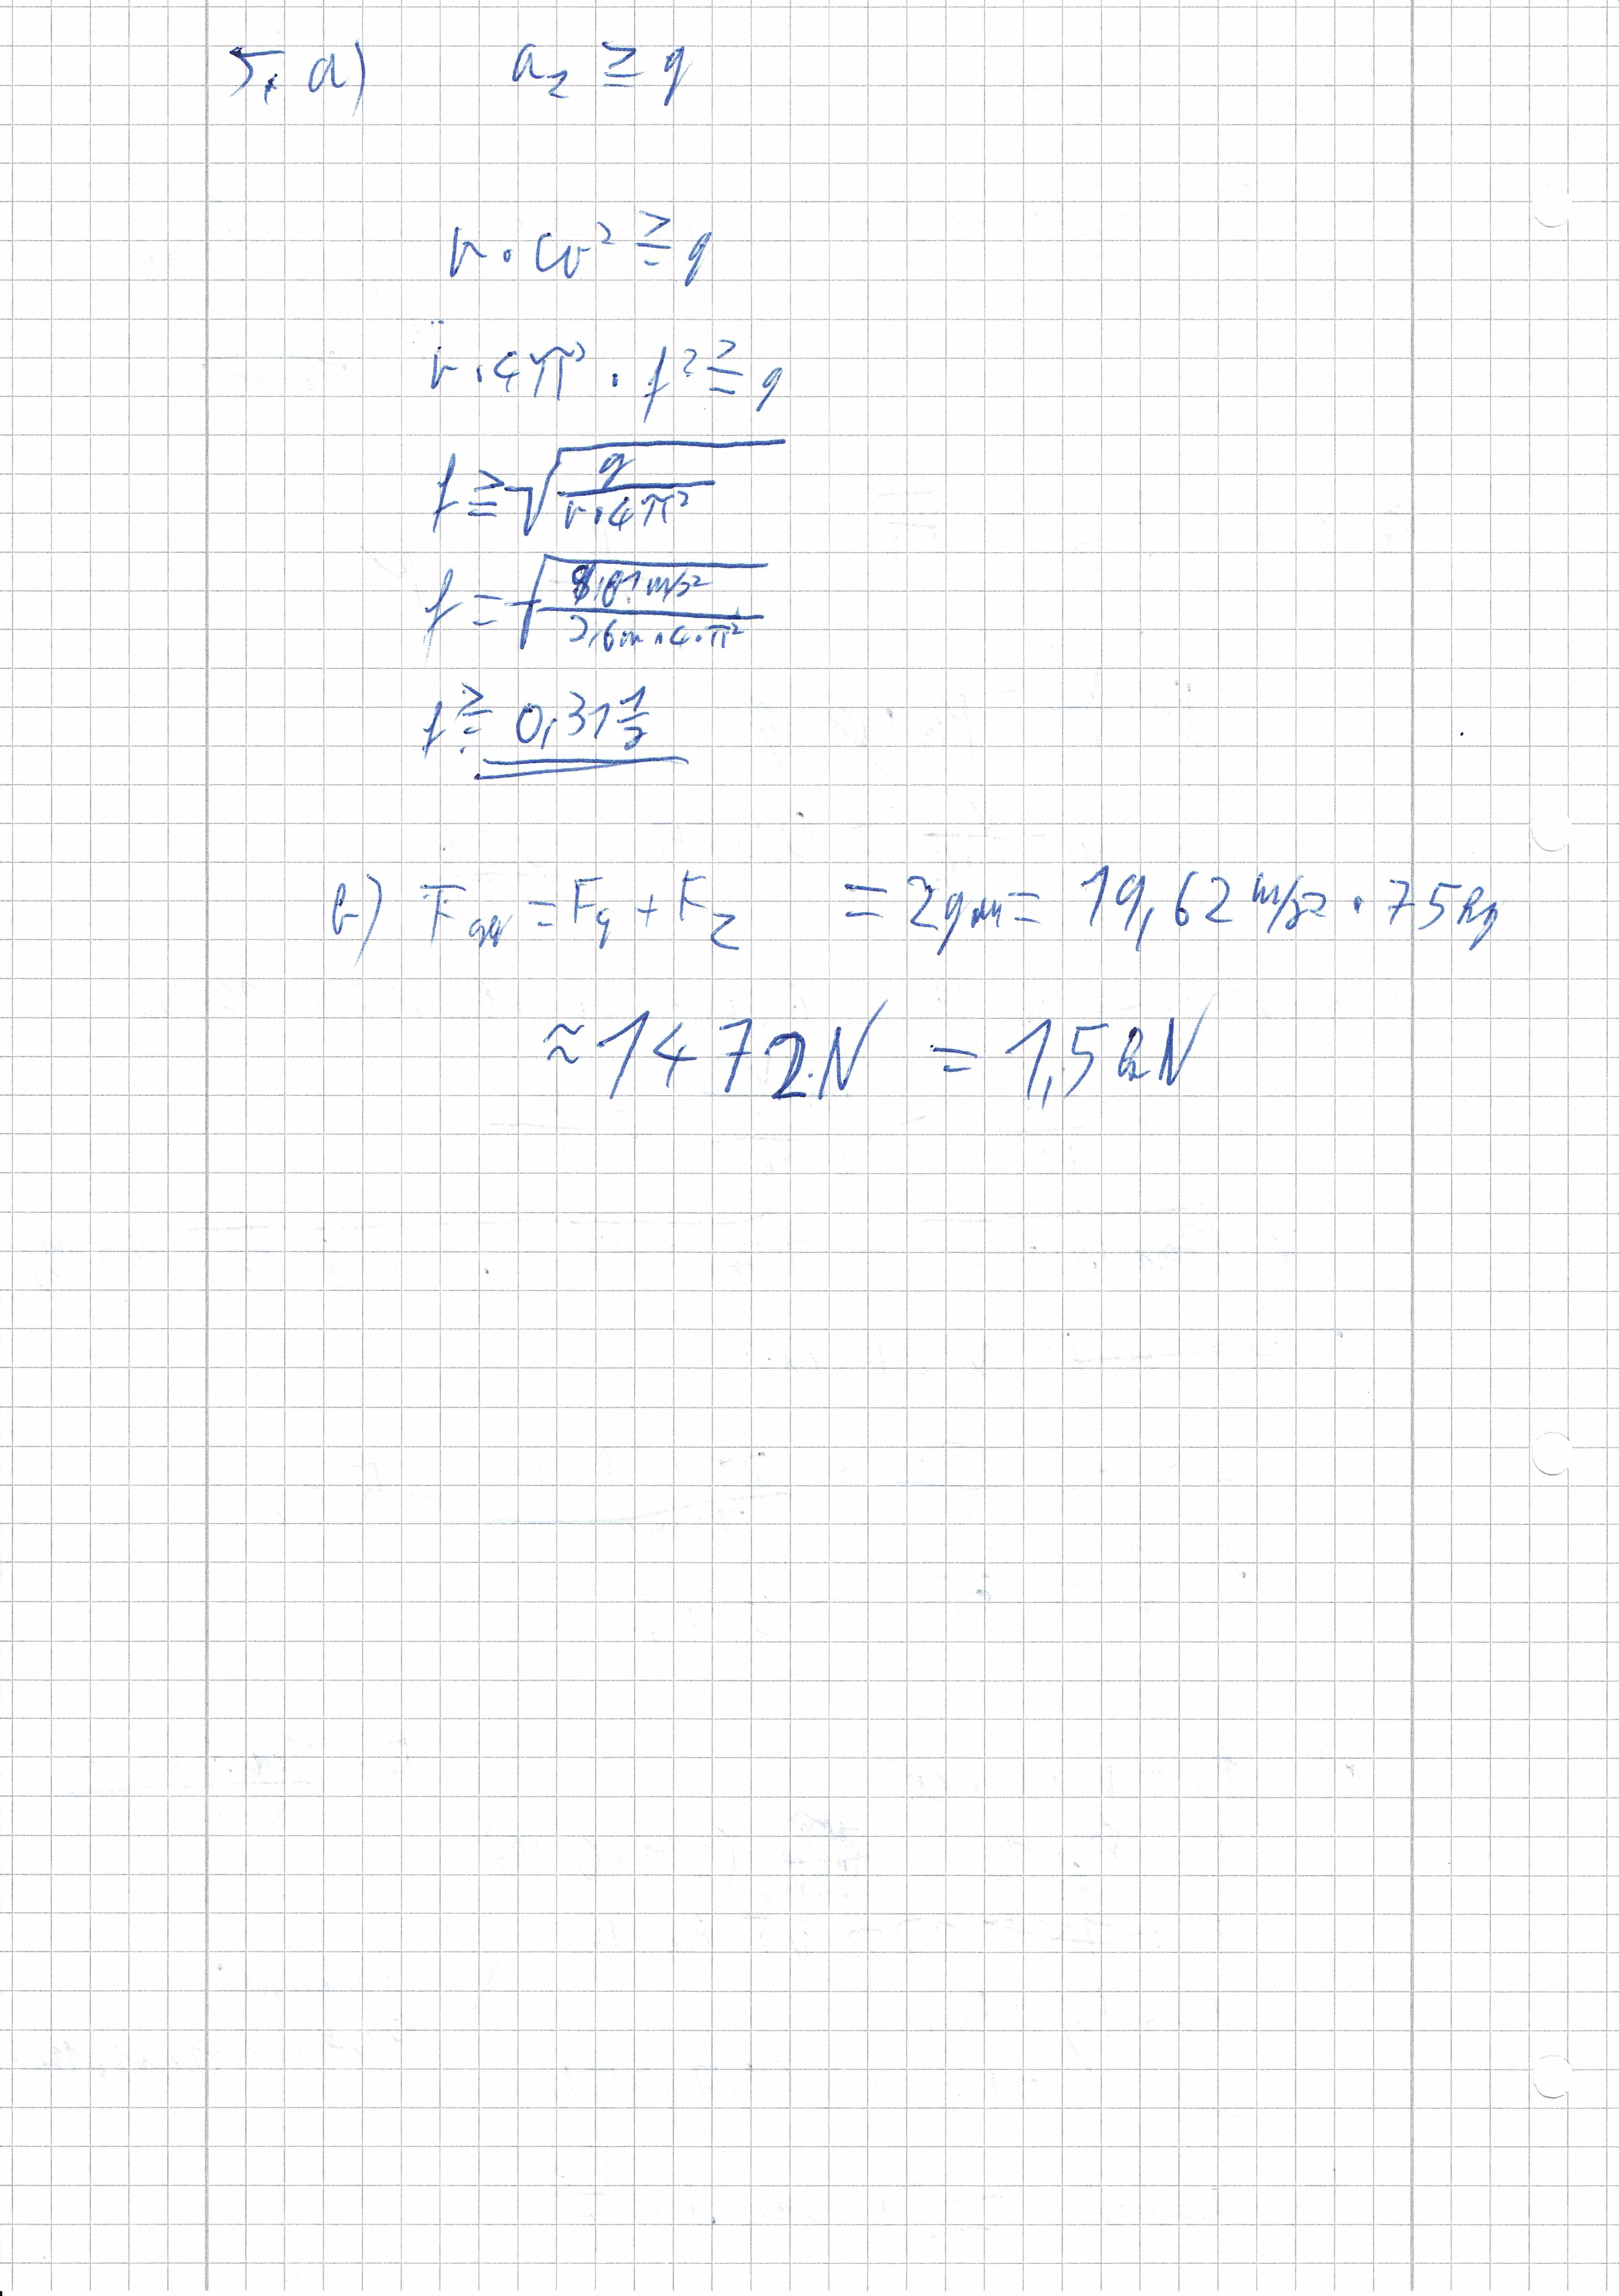 5. a) a_z ≥ g
r · ω² ≥ g
r · 4π² · f² ≥ g
f ≥ √(g / (r · 4π²))
f = √(9,81 m/s² / (2,6m · 4 · π²))
f ≥ 0,31 1/s
b) F_ges = F_g + F_z = 2gm = 19,62 m/s² · 75kg
≈ 1472N = 1,5kN